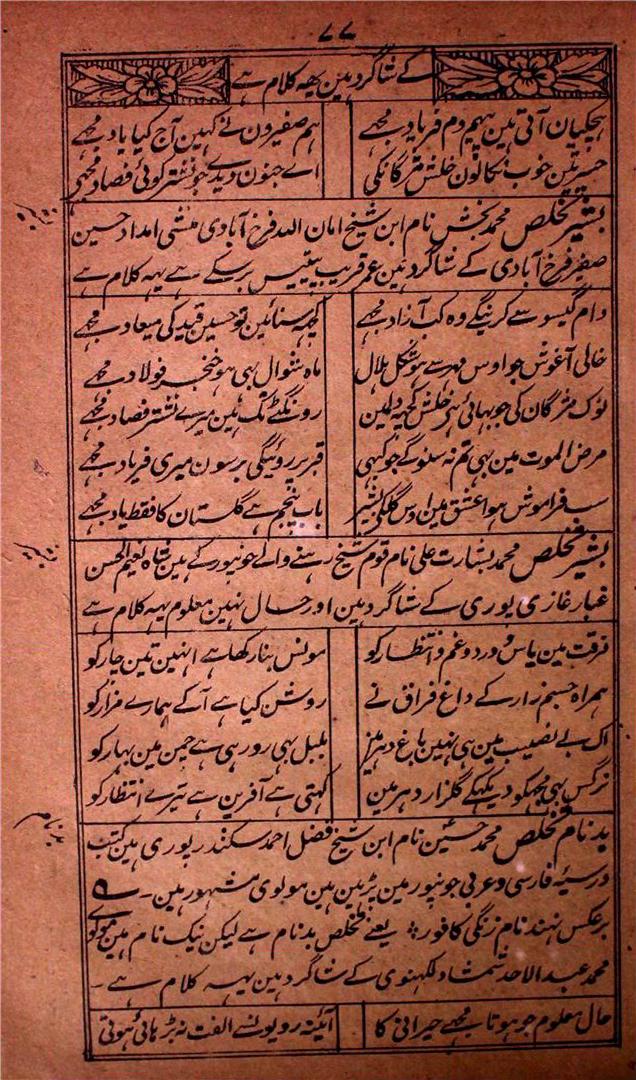 ۷۷
کے شاگرد ہین یہہ کلام ہے
ہچکیان آتی ہین پیہم دم فریاد مجھے
ہم صفیرون نے کہین آج کیا یاد مجھے
حسرتین خوب نکالون خلش مژگانکی
اے جنون دیدے جو نشتر کوئی فصاد مجھے
بشیر تخلص محمد بخش نام ابن شیخ امان اللہ فرخ آبادی منشی امداد حسین
بشیر
صفیر فرخ آبادی کے شاگرد ہین عمر قریب پینتیس برسکے ہے یہہ کلام ہے
دام گیسو سے کرینگے وہ کب آزاد مجھے
کچہہ سنائین تو حسین قید کی میعاد مجھے
خالی آغوش جو اوس مہ سے ہو شکل ہلال
ماہ شوال بہی ہو خنجر فولاد مجھے
نوک مژگان کی جو بہائی ہے خلش کچہہ دلمین
رونگٹے تک ہین میرے نشتر فصاد مجھے
مرض الموت مین بہی تم نہ سنوگے جو کبہی
قبر پر روئیگی برسون میری فریاد مجھے
سب فراموش ہوا عشق مین اوس گلکے بشیر
باب پنجم ہے گلستان کا فقط یاد مجھے
بشیر تخلص محمد بشارت علی نام قوم شیخ رہنے والے جونپور کے ہین شاہ نعیم الحسن
بشیر
غبار غازی پوری کے شاگرد ہین اور حال نہین معلوم یہہ کلام ہے
فرقت مین یاس و درد و غم و انتظار کو
مونس بنا رکھا ہے انہین تین چار کو
ہمراہ جسم زار کے داغ فراق نے
روشن کیا ہے آکے ہمارے مزار کو
اک بے نصیب مین ہی نہین باغ دہر مین
بلبل بہی رو رہی ہے چمن مین بہار کو
نرگس بہی مجہکو دیکہکے گلزار دہر مین
کہتی ہے آفرین ہے تیرے انتظار کو
بدنام تخلص محمد حسین نام ابن شیخ فضل احمد سکندرپوری ہین کتب
بدنام
درسیہ فارسی و عربی جونپور مین پڑہین ہین مولوی مشہور ہین ۔
برعکس نہند نام زنگی کافور ؛ یعنے تخلص بدنام ہے لیکن نیک نام ہین مولوی
محمد عبد الاحد شمشاد لکہنوی کے شاگرد ہین یہہ کلام ہے ۔
حال معلوم جو ہوتا مجھے حیرانی کا
آئینہ رویونسے الفت نہ بڑہائی ہوتی